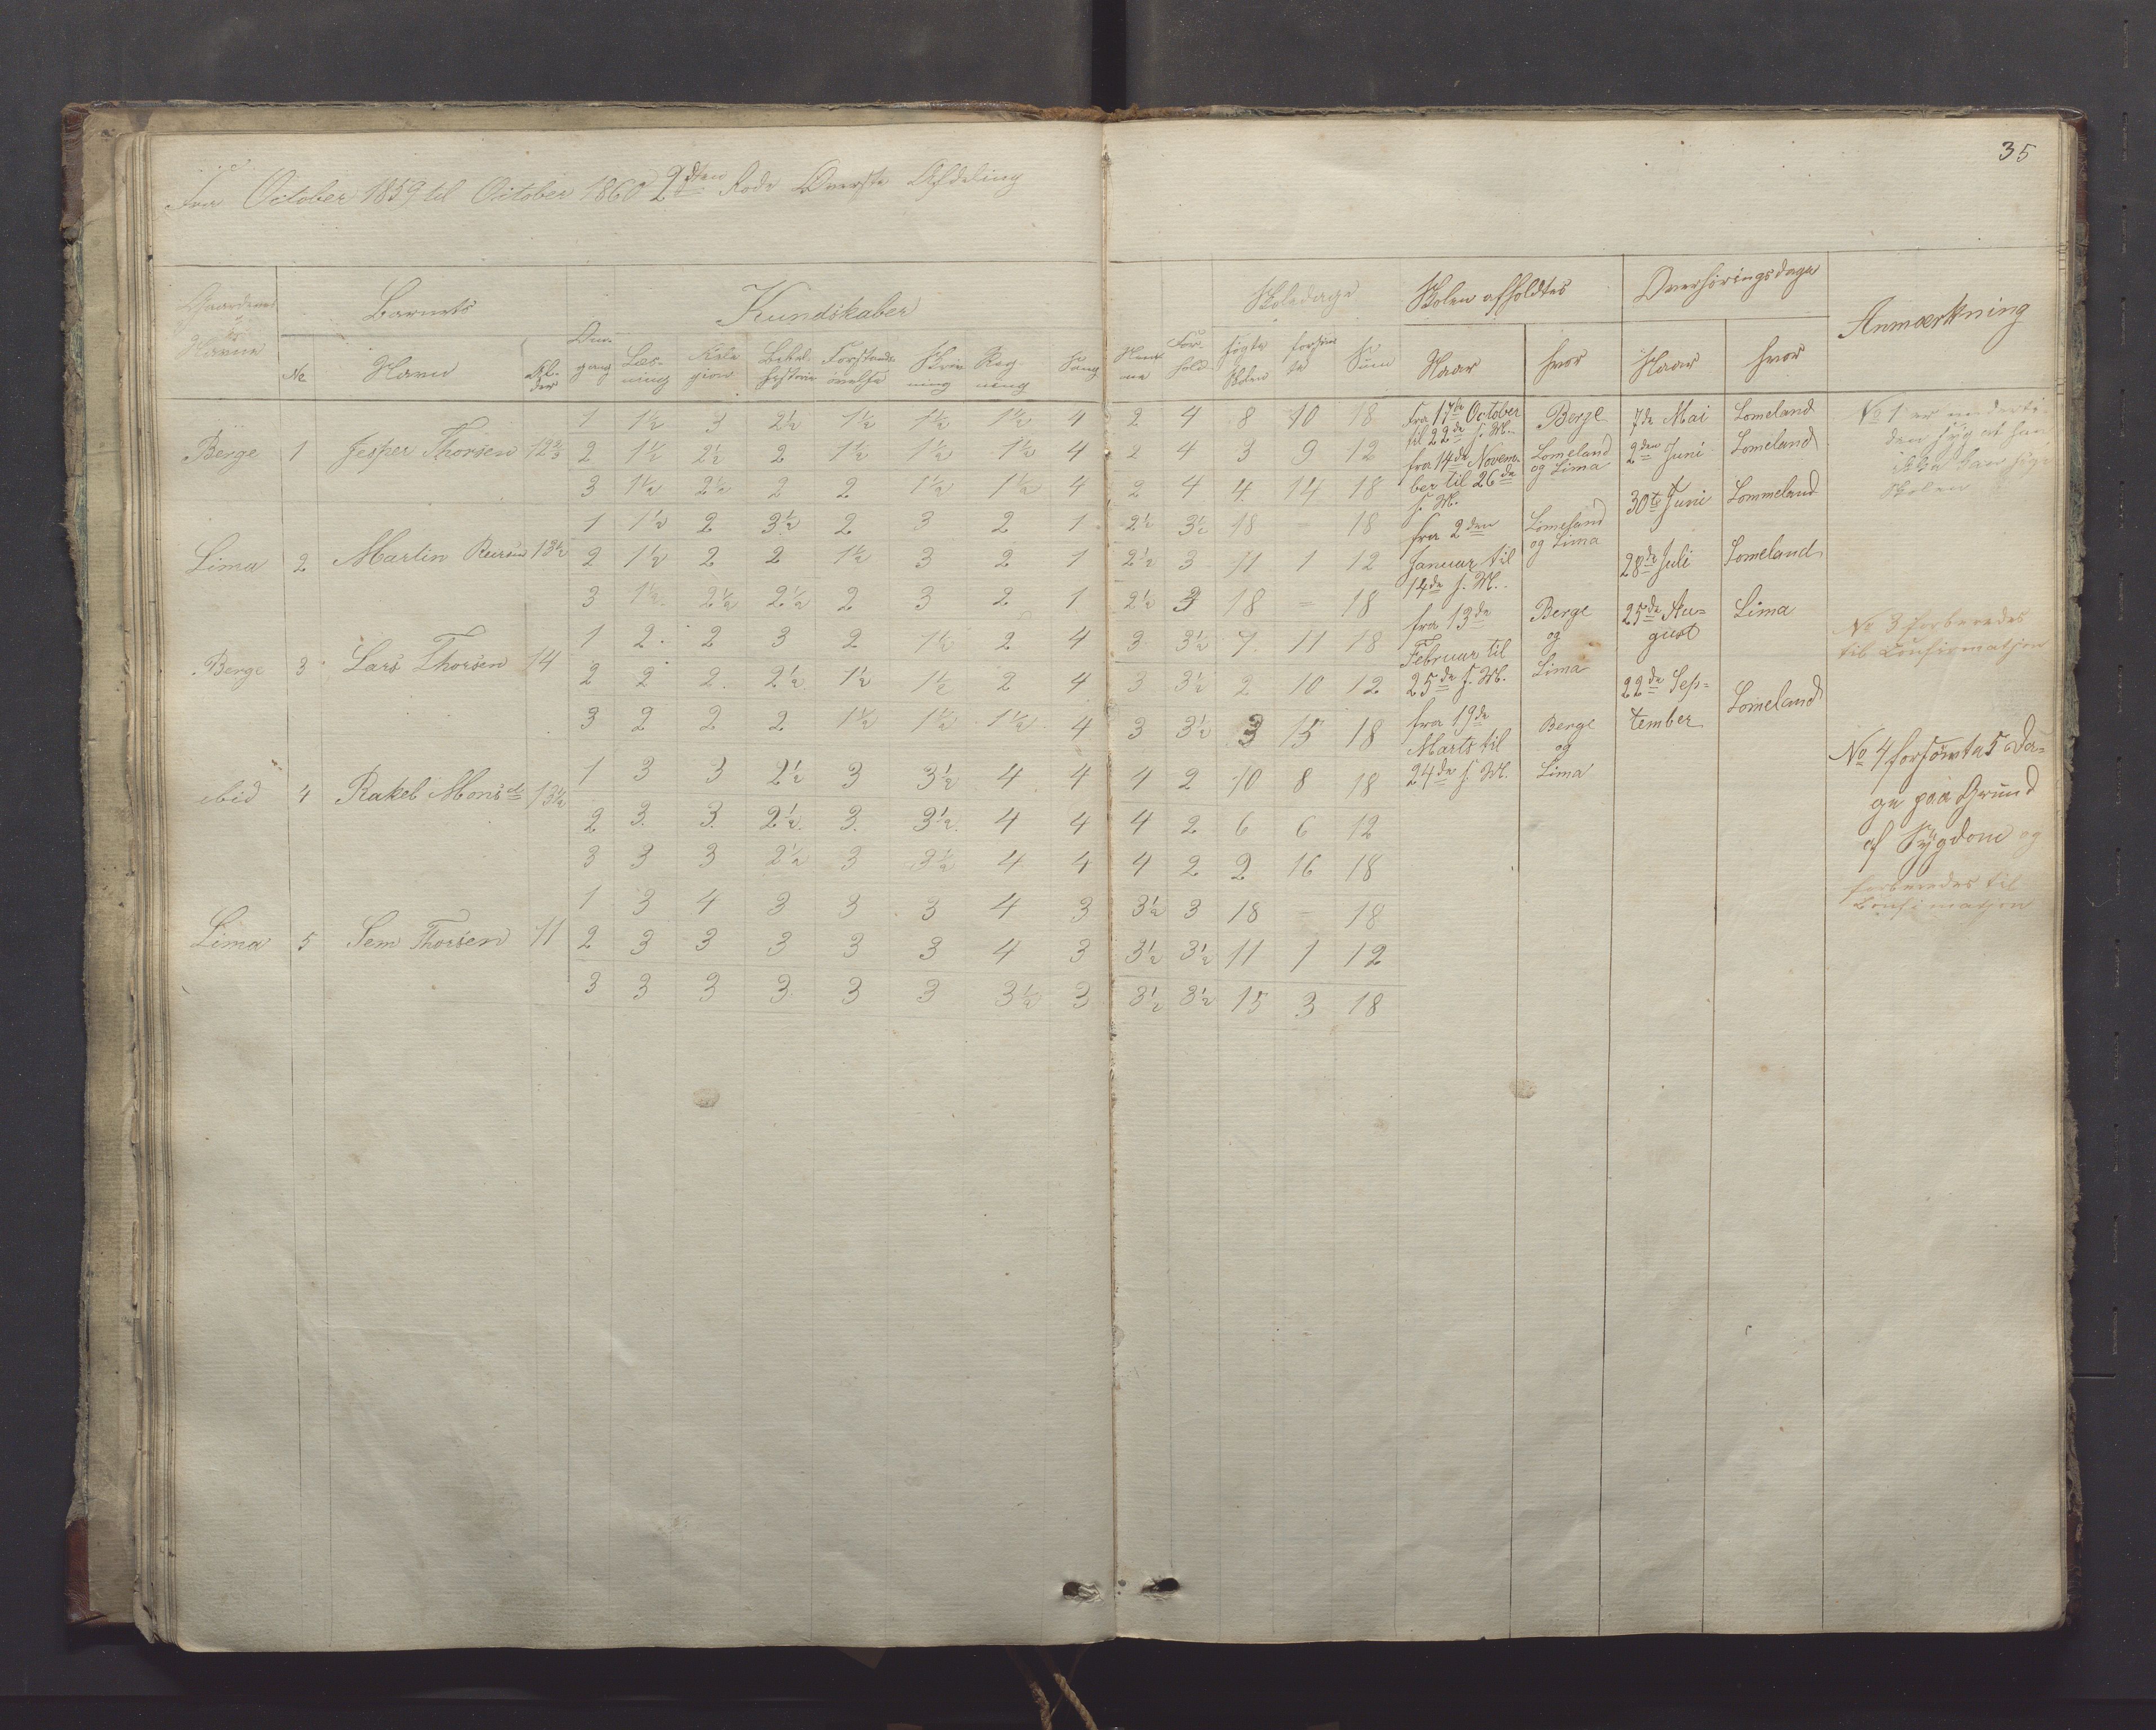 35
Fra October 1859 til October 1860 2den Rode Øverste Afdeling
Gaardenes Navne Barnets Kundskaber Skoledage Skolen afholdtes Overhøringsdage Anmærkning
No Navn Al-der Om-gang Læs-ning Reli-gion Bibel-historie Forstands-øvelse Skriv-ning Reg-ning Sang Nem-me For-hold søgte Skolen forsøm-te Sum Naar hvor Naar hvor
Berge 1 Jesper Thorsen 12 2/3
1 1½ 3 2½ 1½ 1½ 1½ 4 2 4 8 10 18
2 1½ 2½ 2 1½ 1½ 1½ 4 2 4 3 9 12
3 1½ 2½ 2 2 1½ 1½ 4 2 4 4 14 18
Lima 2 Martin 13½
1 1½ 2 3½ 2 3 2 1 2½ 3½ 18 – 18
2 1½ 2 2 1½ 3 2 1 2½ 3 11 1 12
3 1½ 2½ 2½ 2 3 2 1 2½ 3 18 = 18
Berge 3 Lars Thorsen 14
1 2 2 3 2 1½ 2 4 3 3½ 7 11 18
2 2 2 2½ 1½ 1½ 2 4 3 3½ 2 10 12
3 2 2 2 1½ 1½ 1½ 4 3 3½ 3 15 18
ibid 4 Rakel Monsd 13½
1 3 3 2½ 3 3½ 4 4 4 2 10 8 18
2 3 3 2½ 3 3½ 4 4 4 2 6 6 12
3 3 3 2½ 3 3½ 4 4 4 2 2 16 18
Lima 5 Sem Thorsen 11
1 3 4 3 3 3 4 3 3½ 3 18 – 18
2 3 3 3 3 3 4 3 3½ 3½ 11 1 12
3 3 3 3 3 3 3½ 3 3½ 3½ 15 3 18
Fra 17de October
til 22de s. M.
fra 14de Novem-
ber til 26de
s. M.
fra 2den
Januar til
14de s. M.
fra 13de
Februar til
25de s. M.
fra 19de
Marts til
24de s. M.
Berge
Lomeland
og Lima
Lomeland
og Lima
Berge
og
Lima
Berge
og
Lima
7de Mai Lomeland
2den Juni Lomeland
30te Juni Lommeland
28de Juli Lomeland
25de Au=
gust
Lima
22de Sep=
tember
Lomeland
No 1 er underti-
den syg at han
ikke kan søge
Skolen
No 3 forberedes
til Confirmatjon
No 4 forsømte 5 Da=
ge paa Grund
af Sygdom og
forberedes til
Confirmatjon